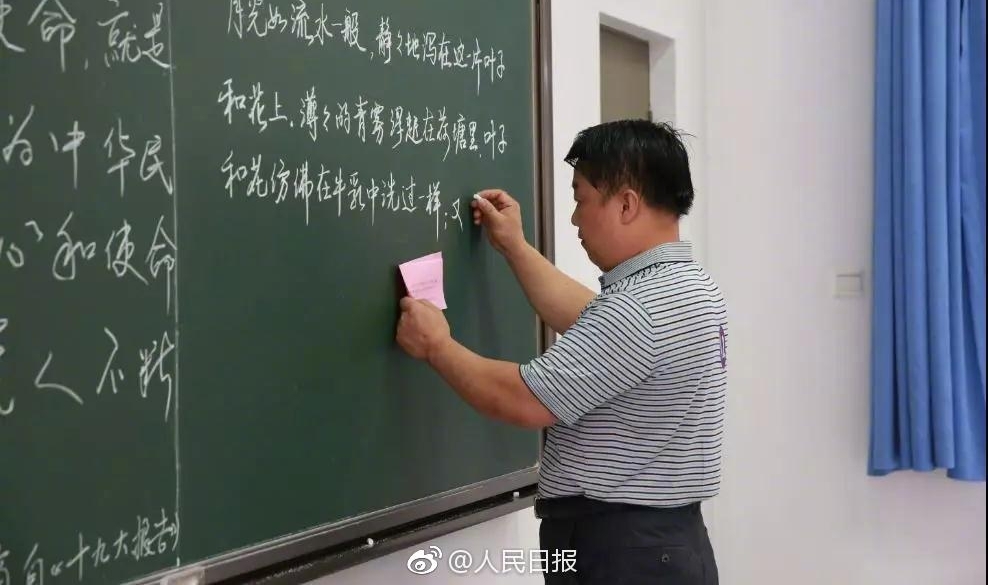 使命,就是
为中华民
和使命
人不断
自《十九大报告》
月光如流水一般,静々地泻在这一片叶子
和花上.薄々的青雾浮起在荷塘里.叶子
和花仿佛在牛乳中洗过一样;又
@人民日报